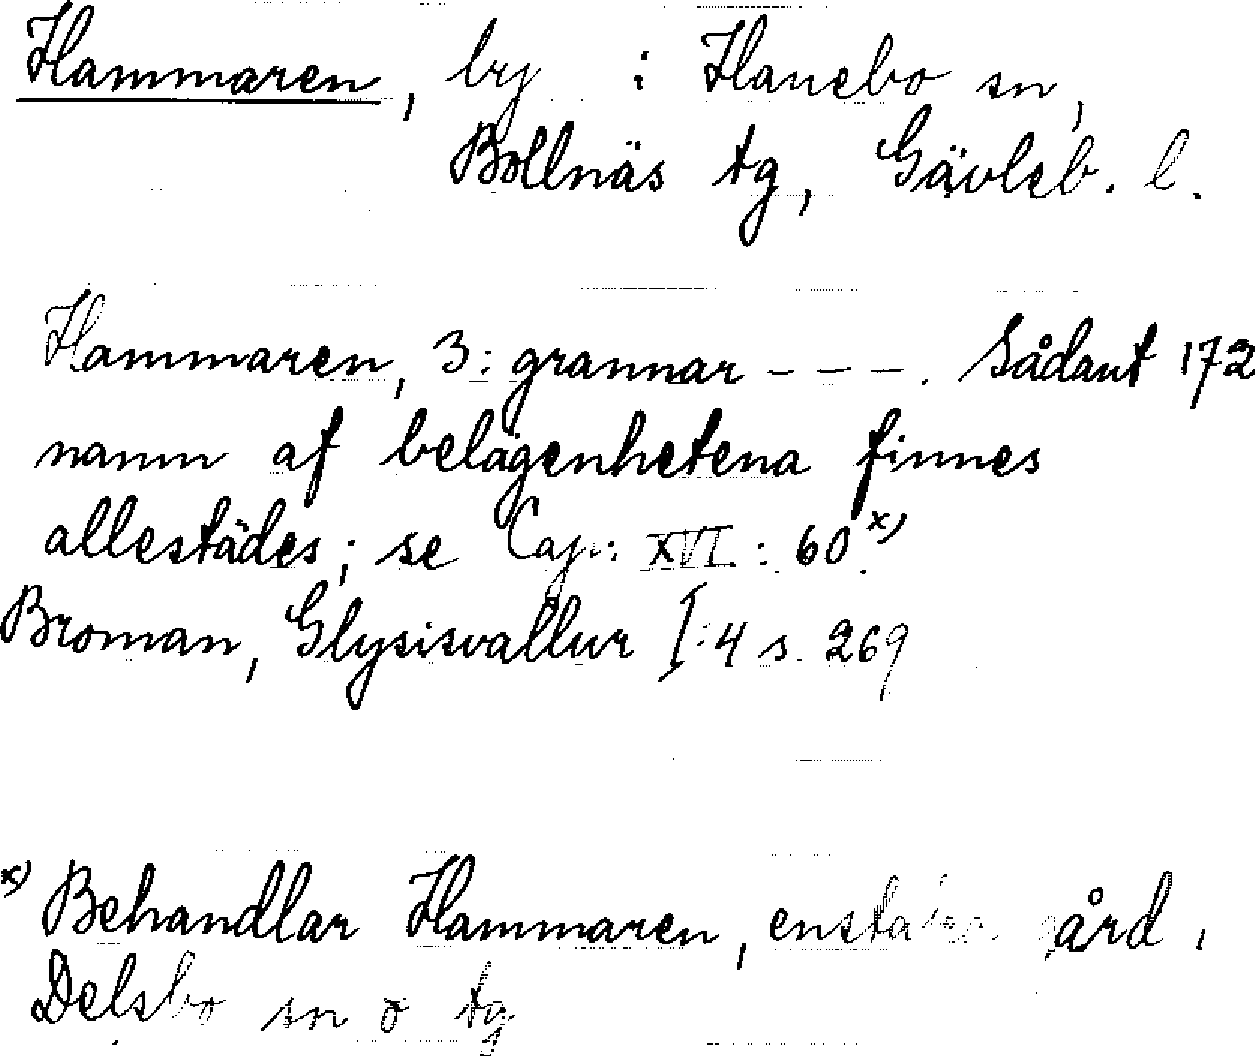 Hammaren, by i Hanebo sn,
Bollnäs tg, Gävleb. l.
Hammaren, 3: grannar - - - . Sådant 172
namn af belägenhetena finnes
allestädes; se Cap: XVI: 60 x)
Broman, Glysisvallur I:4 s. 269
x) Behandlar Hammaren, enstaka gård i
Delsbo sn o tg